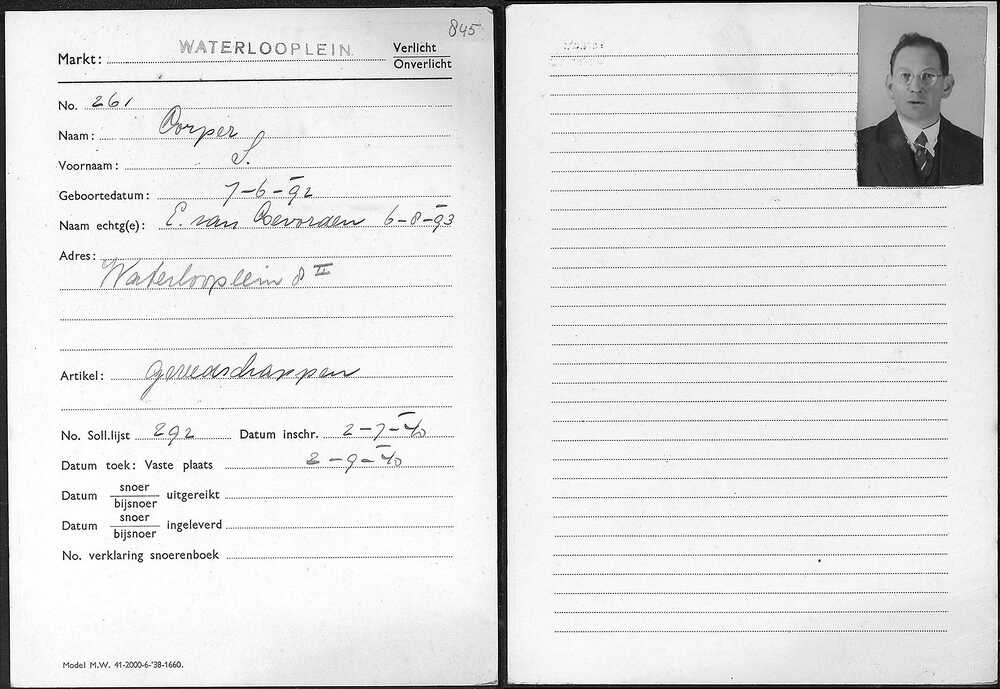 845
Markt: WATERLOOPLEIN
Verlicht
Onverlicht
No. 261
Naam: Oorper
Voornaam: S.
Geboortedatum: 7-6-92
Naam echtg(e): E. van Coevorden 6-8-93
Adres:
Waterlooplein 8 II
Artikel: gereedschappen
No. Soll.lijst 292 Datum inschr. 2-7-40
Datum toek: Vaste plaats 2-9-40
Datum snoer uitgereikt
bijsnoer
Datum snoer ingeleverd
bijsnoer
No. verklaring snoerenboek
Model M.W. 41-2000-6-'38-1660.